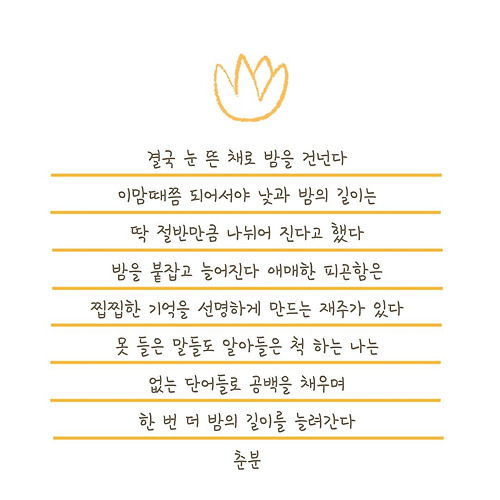 결국 눈 뜬 채로 밤을 건넌다
이맘때쯤 되어서야 낮과 밤의 길이는
딱 절반만큼 나뉘어 진다고 했다
밤을 붙잡고 늘어진다 애매한 피곤함은
찝찝한 기억을 선명하게 만드는 재주가 있다
못 들은 말들도 알아들은 척 하는 나는
없는 단어들로 공백을 채우며
한 번 더 밤의 길이를 늘려간다
춘분